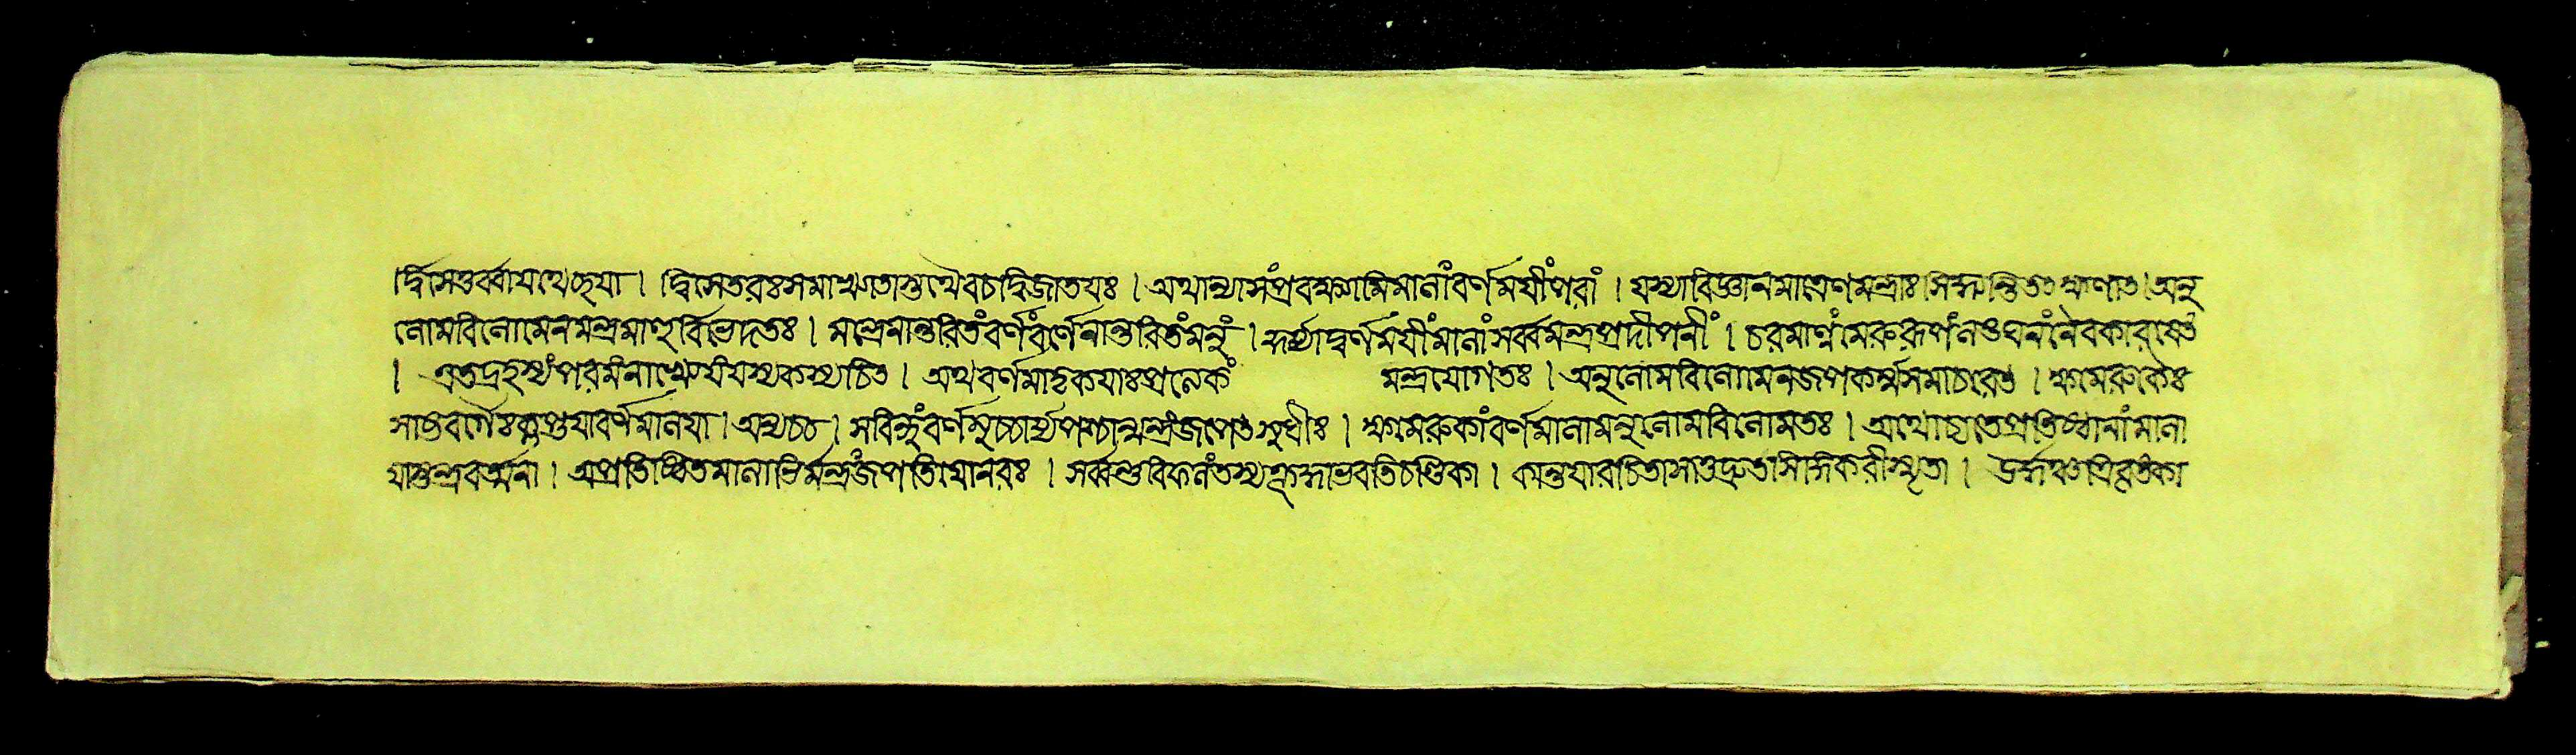 ।র্দ্বিসপ্তর্ব্বাযথেচ্ছযা। দ্বিসেতরঃসমাখ্যাতাস্তথৈবচদ্বিজাতযঃ। অথান্যাসংপ্রবক্ষ্যামিমালাংবর্ণমযীংপরাং। যস্যাবিজ্ঞানমাত্রেণমন্ত্রাঃসিদ্ধ্যন্তিতৎক্ষণাৎ।অনু
লোমবিলোমেনমন্ত্রমালুর্বিভেদতঃ। মন্ত্রেনান্তরিতংবর্ণংবর্ণেনান্তরিতংমনুং। কুর্য্যাদ্বর্ণমযীংমালাংসর্ব্বমন্ত্রপ্রদীপনীং। চরমার্ণংমেরুরূপংলঙ্ঘনংনৈবকারযেৎ
। এতদ্রহস্যংপরমংনাখ্যেযংযস্যকস্যচিৎ। অথবর্ণমাতৃকযাঃপ্রত্যেকং মন্ত্রযোগতঃ। অনুলোমবিলোমেনজপকর্ম্মসমাচরেৎ। ক্ষমেরুকৈঃ
সাষ্টবর্গৈঃকৢপ্তযাবর্ণমালযা।অন্যচ্চ। সবিন্দুংবর্ণমুচ্চার্য্যপশ্চান্মন্ত্রংজপেৎসুধীঃ। ক্ষমেরুকাংবর্ণমালামনুলোমবিলোমতঃ। অথোচ্যতেপ্রতিষ্ঠানাংমালা
যাস্তন্ত্রবর্ত্মনা। অপ্রতিষ্ঠিতমালাভির্মন্ত্রংজপতিযোনরঃ। সর্ব্বন্তদ্বিফলংতস্যক্রুদ্ধাভবতিচণ্ডিকা। কান্তযারচিতাসাতুদ্রুতাসিদ্ধিকরীস্মৃতা।